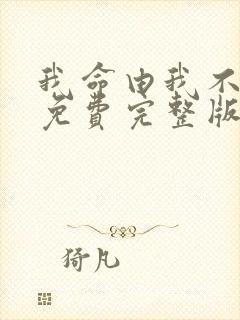 我命由我不
免费完整版
猗凡